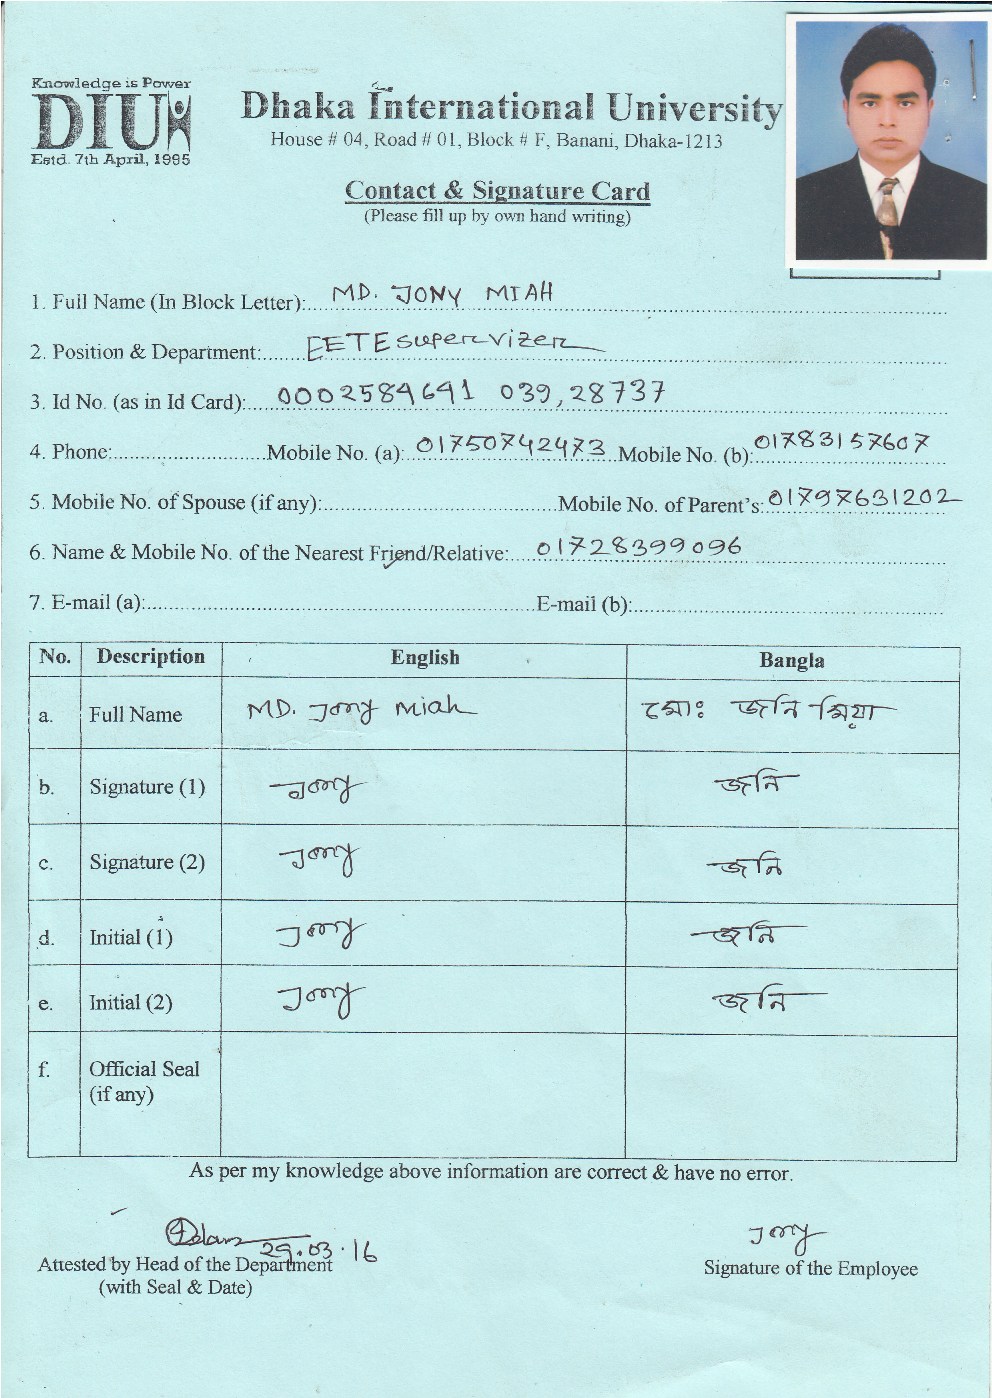 Knowledge is Power
DIU
Estd. 7th April, 1995
Dhaka International University
House # 04, Road # 01, Block # F, Banani, Dhaka-1213
Contact & Signature Card
(Please fill up by own hand writing)
1. Full Name (In Block Letter): MD. JONY MIAH
2. Position & Department: EETE supervizer
3. Id No. (as in Id Card): 0002584641 039,28737
4. Phone: Mobile No. (a): 01750742473 Mobile No. (b): 01783157607
5. Mobile No. of Spouse (if any): Mobile No. of Parent's: 01797631202
6. Name & Mobile No. of the Nearest Friend/Relative: 01728399096
7. E-mail (a): E-mail (b):
No. Description English Bangla
a. Full Name MD. Jony Miah মোঃ জনি মিয়া
b. Signature (1) Jony জনি
c. Signature (2) Jony জনি
d. Initial (1) Jony জনি
e. Initial (2) Jony জনি
f. Official Seal
(if any)
As per my knowledge above information are correct & have no error.
29.03.16 Jony
Attested by Head of the Department Signature of the Employee
(with Seal & Date)